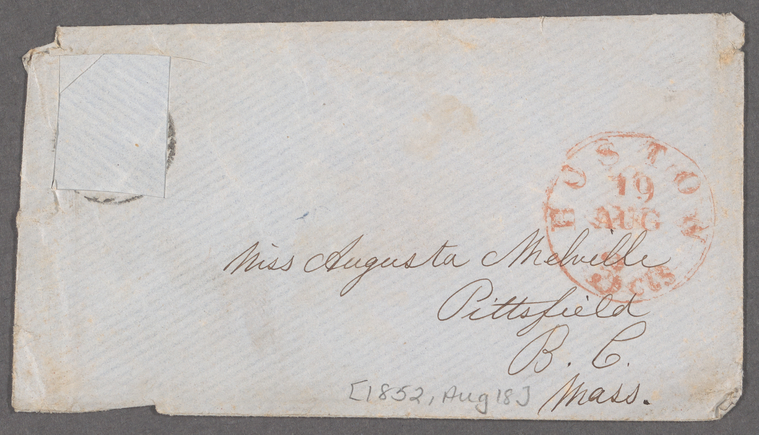 BOSTON
19
AUG
3 cts
Miss Augusta Melville
Pittsfield
B. C.
Mass.
[1852, Aug 18]